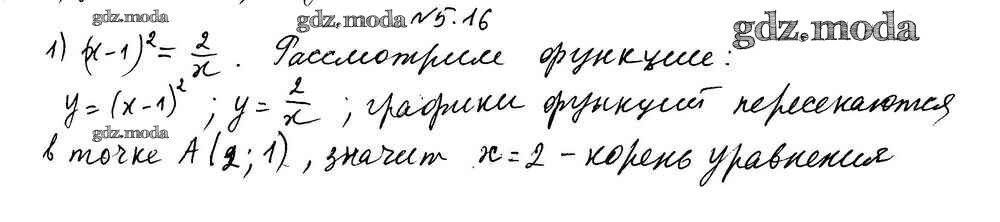 gdz.moda №5.16
gdz.moda
1) (x-1)² = 2/x. Рассмотрим функции:
y = (x-1)²; y = 2/x; графики функций пересекаются
gdz.moda
в точке A(2;1), значит x=2 - корень уравнения